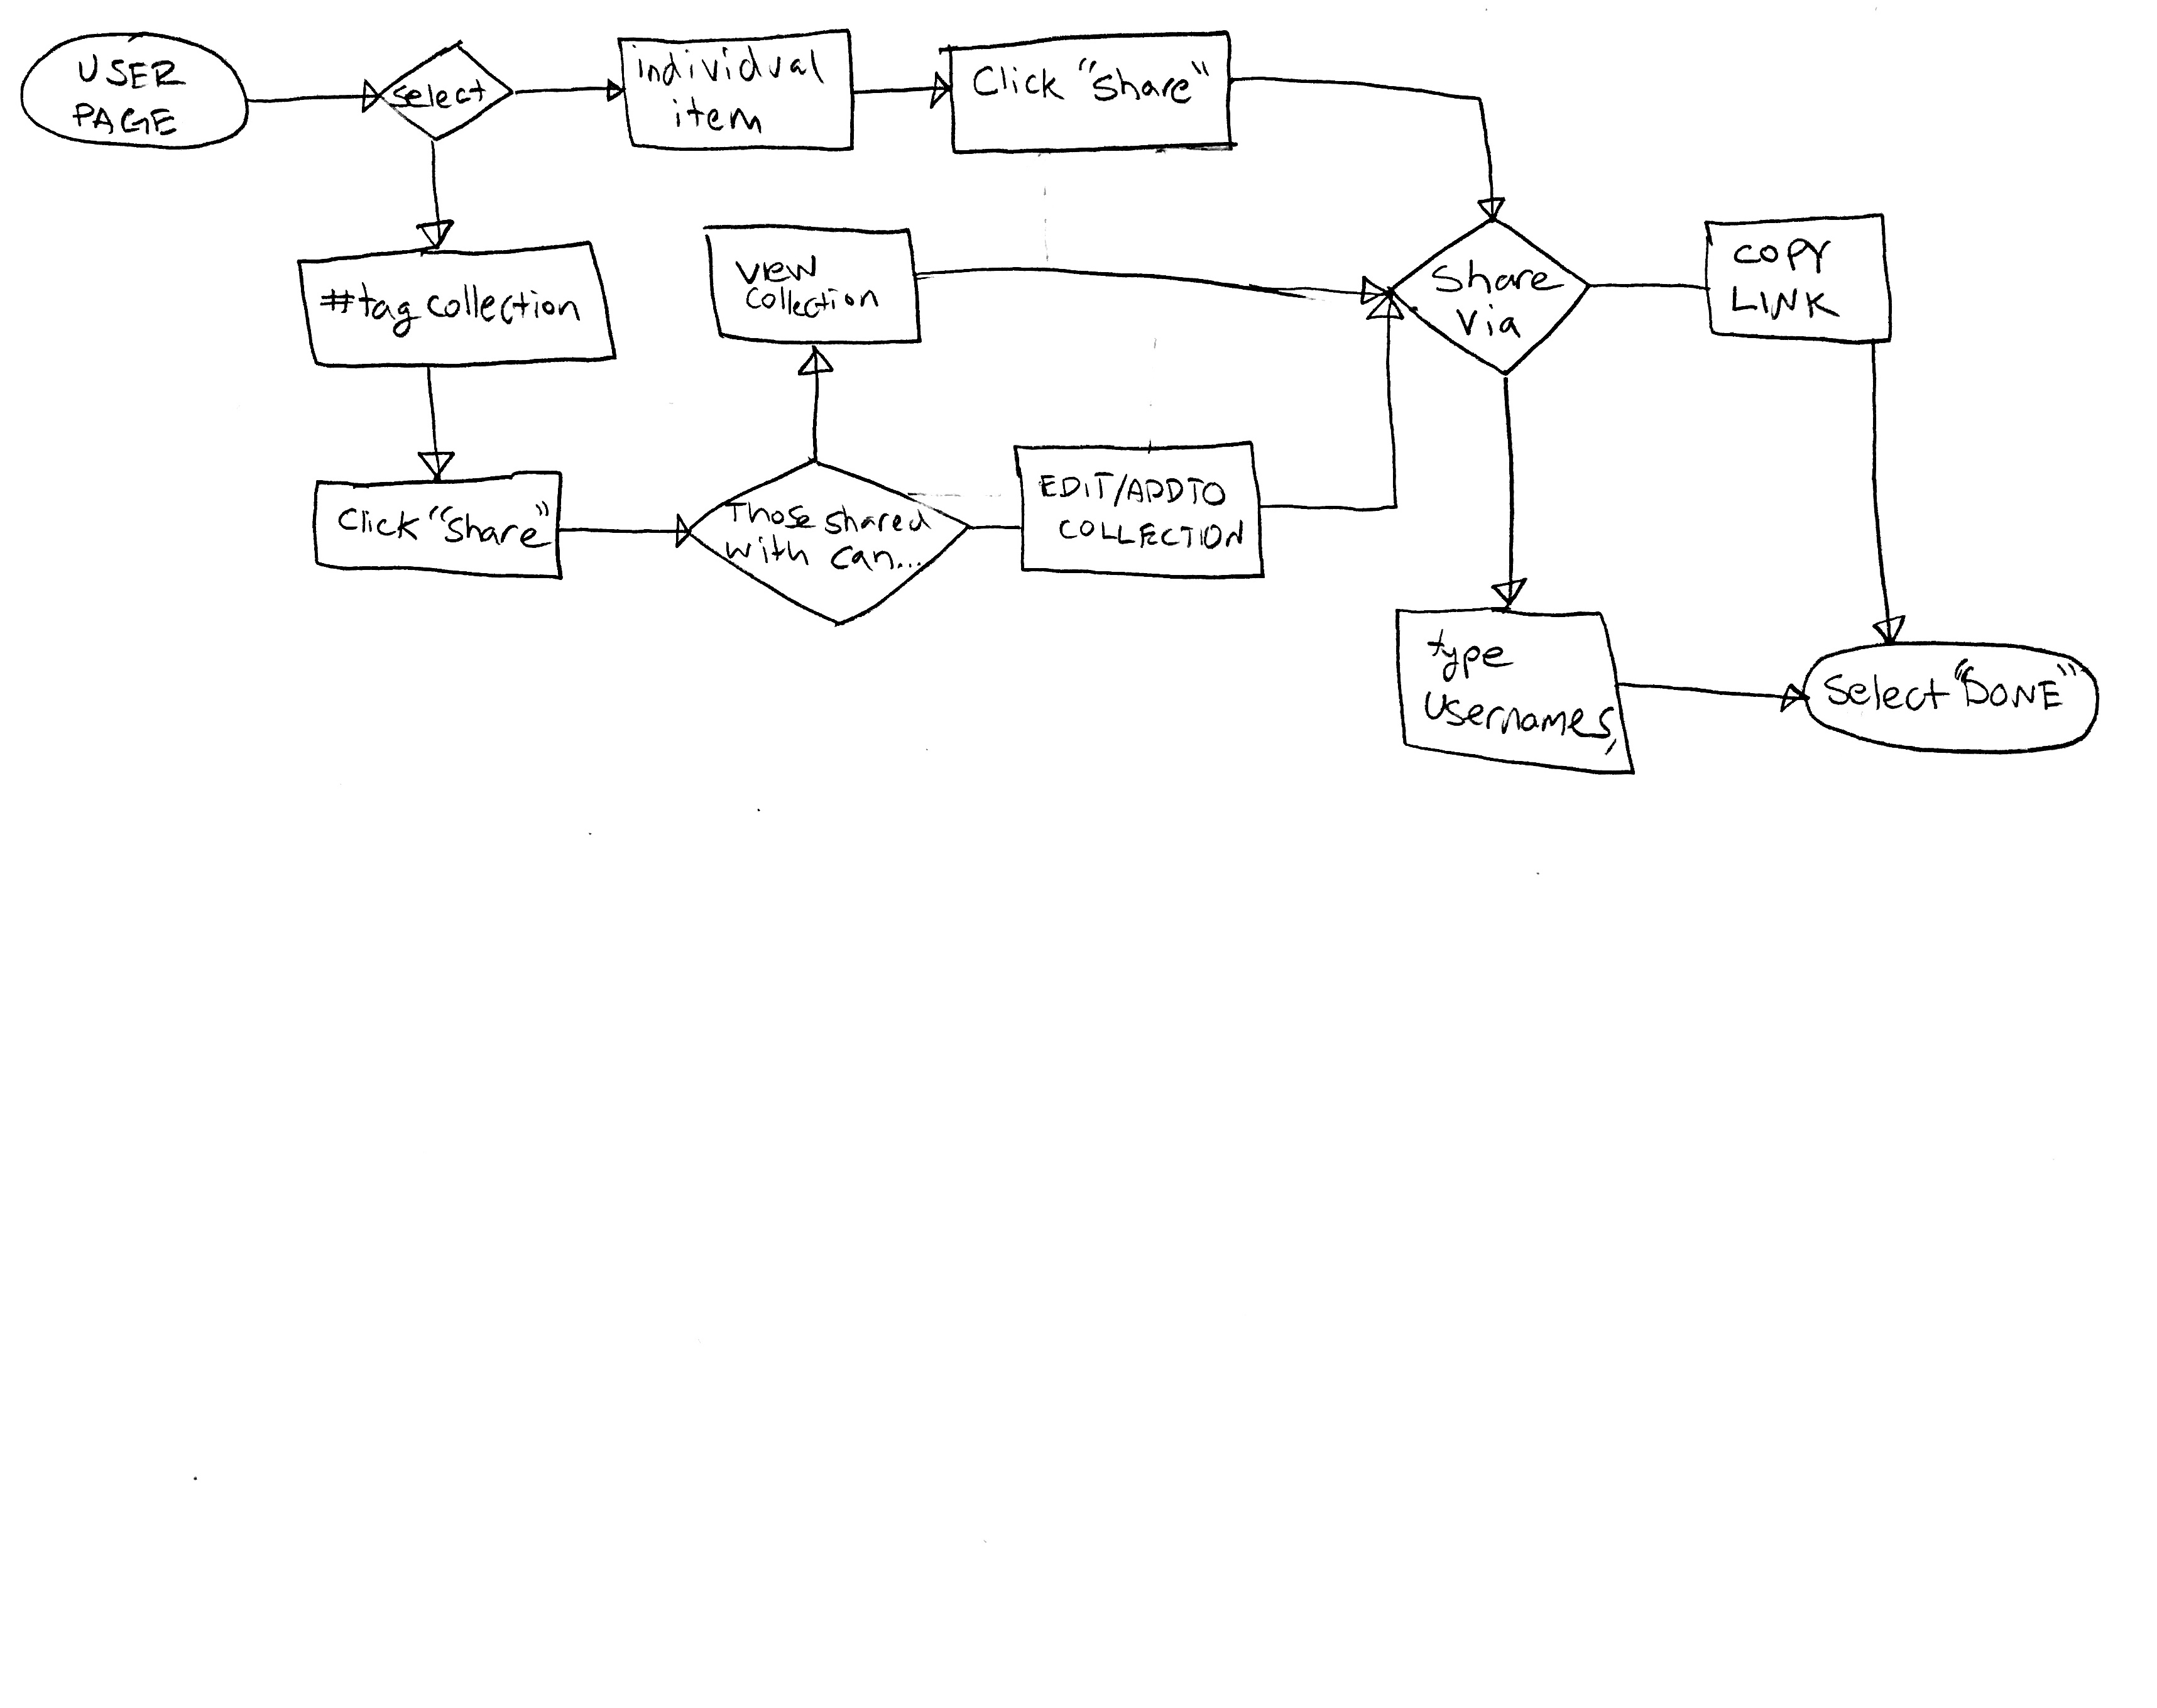 USER
PAGE
select
individual
item
Click "Share"
#tag collection
View
Collection
Share
Via
COPY
LINK
Click "Share"
Those shared
with can...
EDIT/ADD TO
COLLECTION
type
Usernames,
Select "DONE"